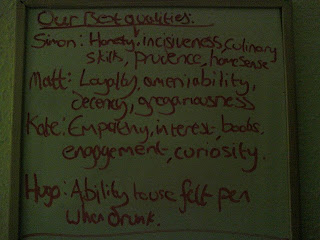 Our Best qualities.
Simon: Honesty, incisiveness, culinary
skills, prudence, homeSense
Matt: Loyalty, ameniability,
decency, gregariousness
Kate: Empathy, interest, boobs,
engagement, curiosity.
Hugo: Ability to use felt pen
when drunk.